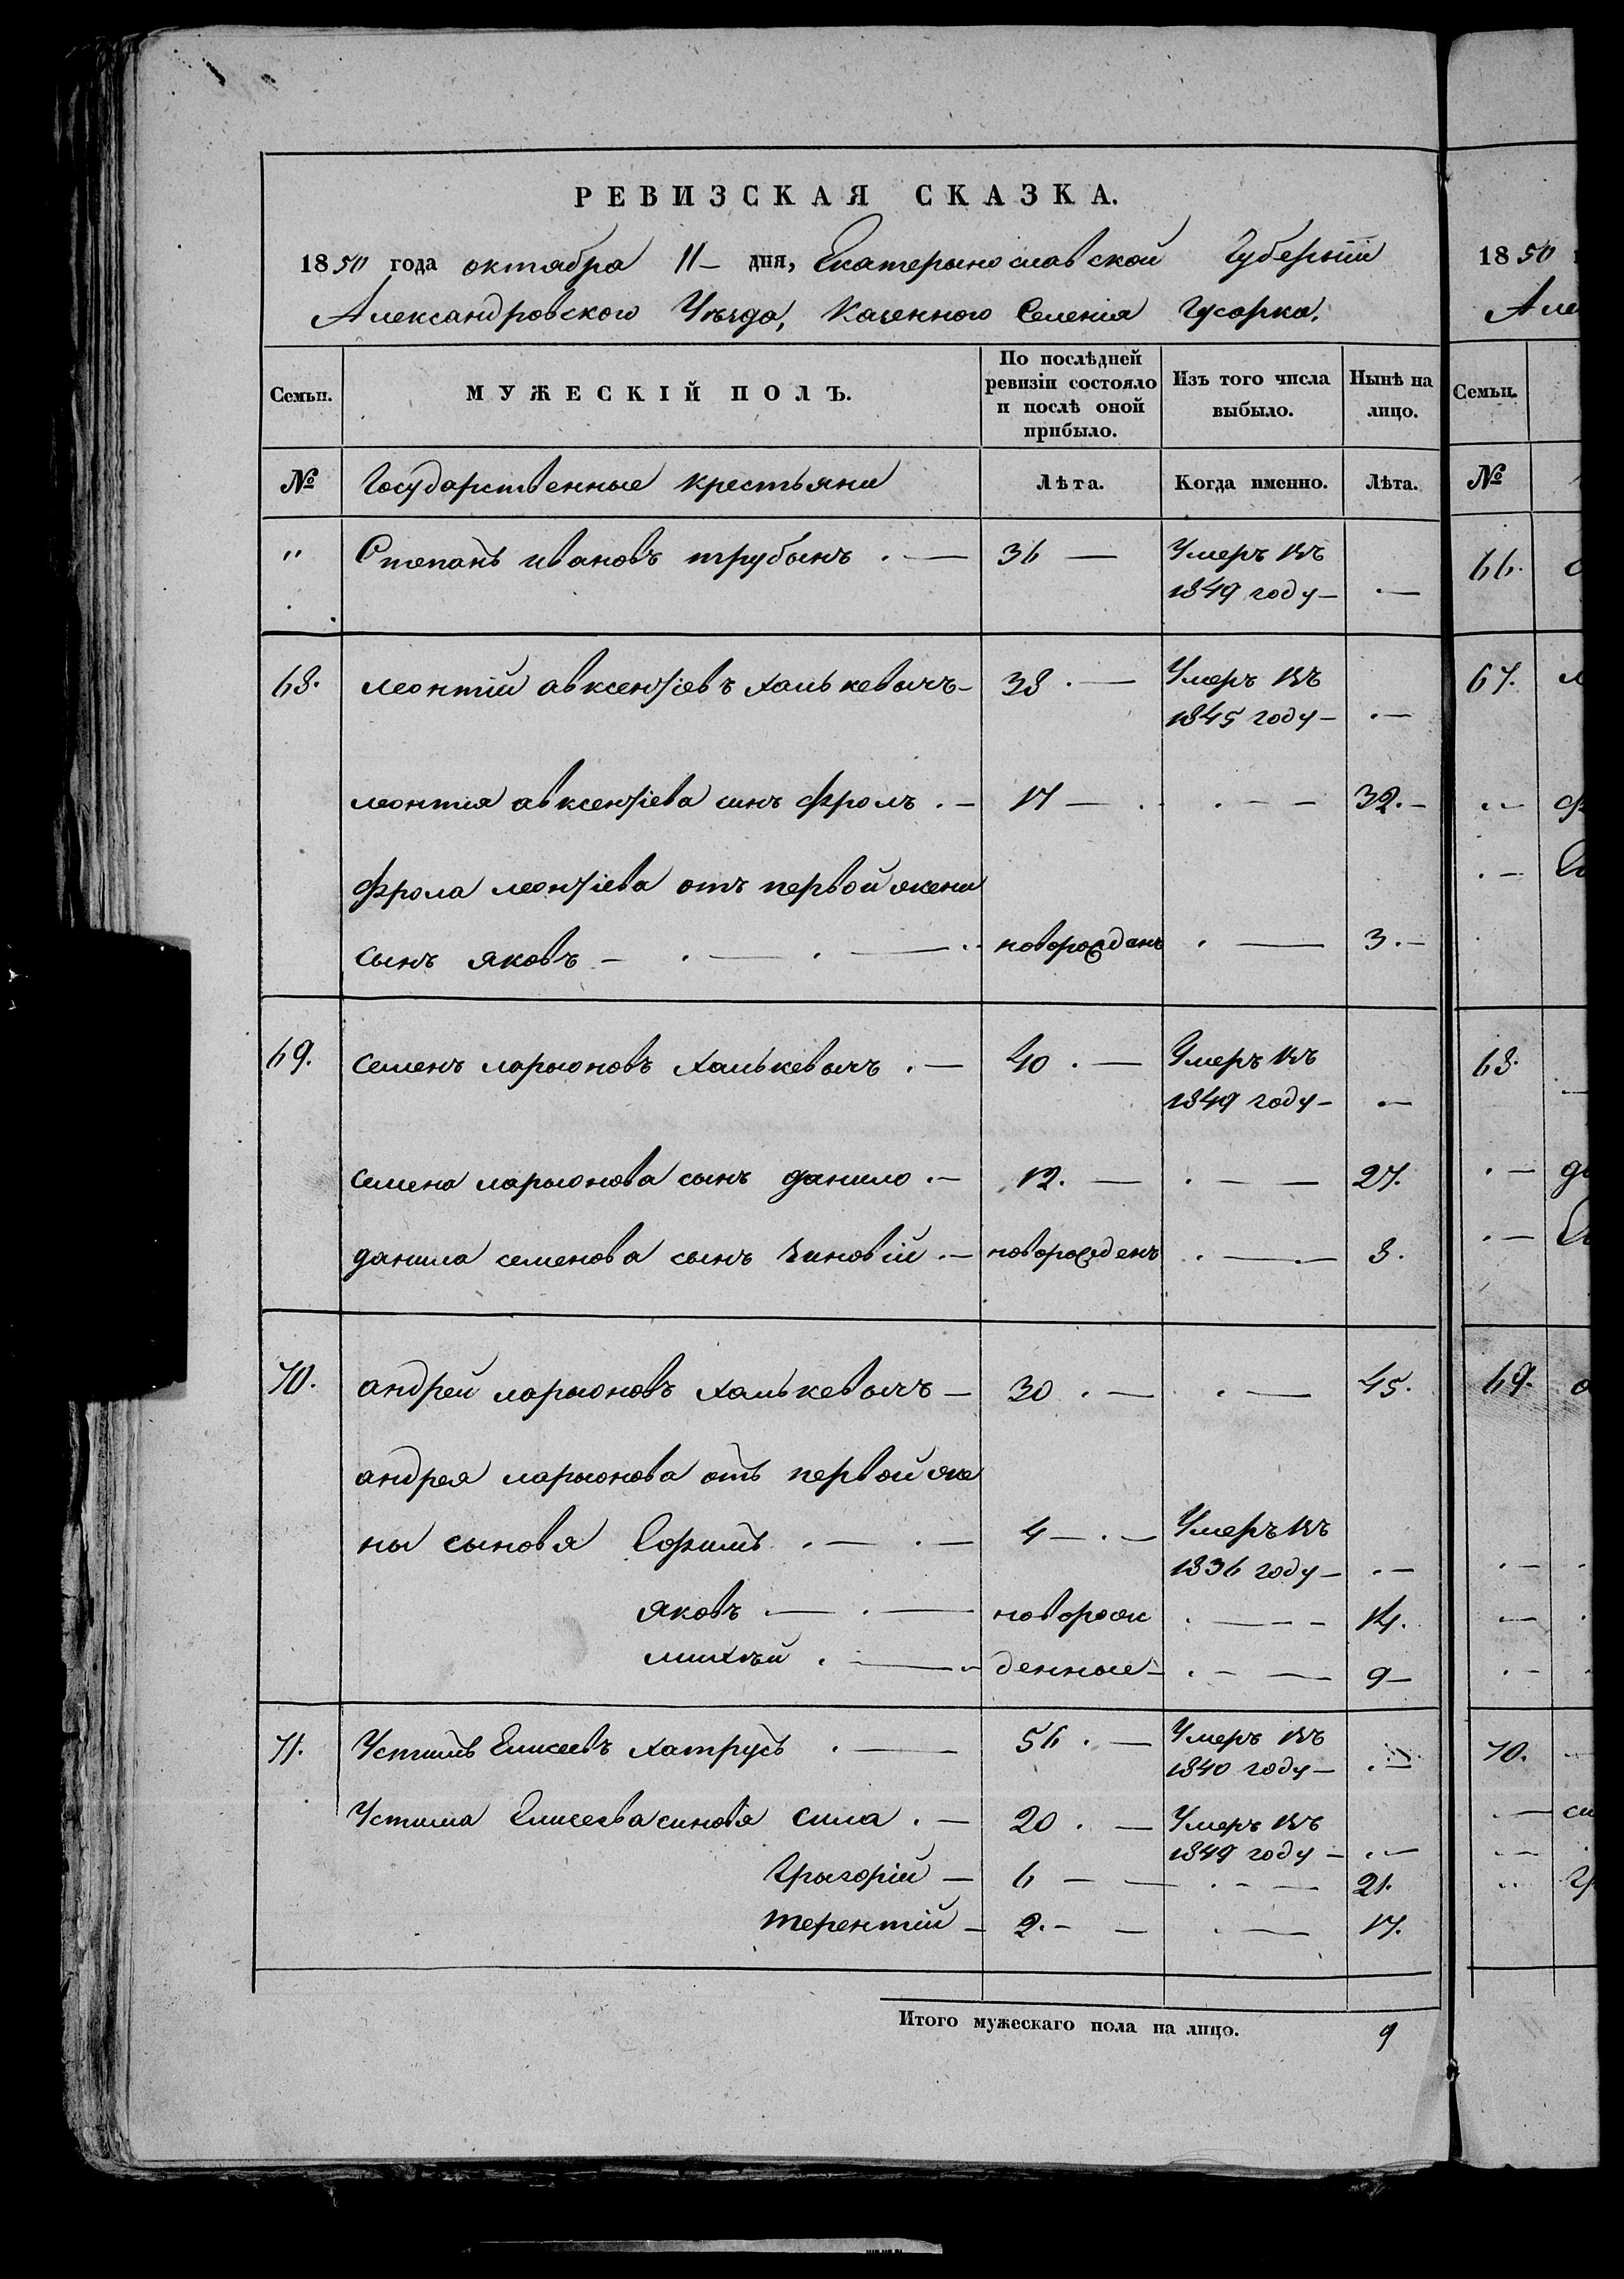 РЕВИЗСКАЯ СКАЗКА.
1850 года октября 11 – дня, Екатеринославской Губернии
Александровского Уезда, Казенного Селения Гусарка.
Семьи. МУЖЕСКІЙ ПОЛЪ. По послѣдней ревизіи состояло и послѣ оной прибыло. Изъ того числа выбыло. Нынѣ на лицо.
№ Государственные крестьяни Лѣта. Когда именно. Лѣта.
" Степанъ ивановъ трубынъ . — 36 — Умеръ въ
1849 году – . —
68. леонтій авксентіевъ халькевычъ – 38 . — Умеръ въ
1845 году – . —
леонтия авксентіева синъ фролъ . – 17 — . . – – 32. –
фрола леонтіева отъ первой жени
сынъ яковъ – . — . — новорожденъ . — 3. –
69. семенъ ларыоновъ халькевычъ . — 40 . — Умеръ въ
1849 году – . —
семена ларыонова сынъ данило . – 12. — . – — 27.
данила семенова сынъ зиновій . – новорожденъ . — 8.
70. андрей ларыоновъ халькевычъ – 30 . — . — 45.
андрея ларыонова отъ первой же
ны сыновя Ефимъ . — . — 4 — . – Умеръ въ
1836 году – . –
яковъ . — . — новорож . — – – 14.
михѣй . — денные – . – — 9 –
71. Устимъ Елисеевъ хатрусъ . — 56 . — Умеръ въ
1840 году – . –
Устима Елисеева синовя сила . – 20 . – Умеръ въ
1849 году – . —
Грыгорій – 6 – — . – — 21.
терентій – 2. – – . — 17.
Итого мужескаго пола на лицо. 9
1850
Але
Семьи.
№
66.
67.
68.
69.
70.